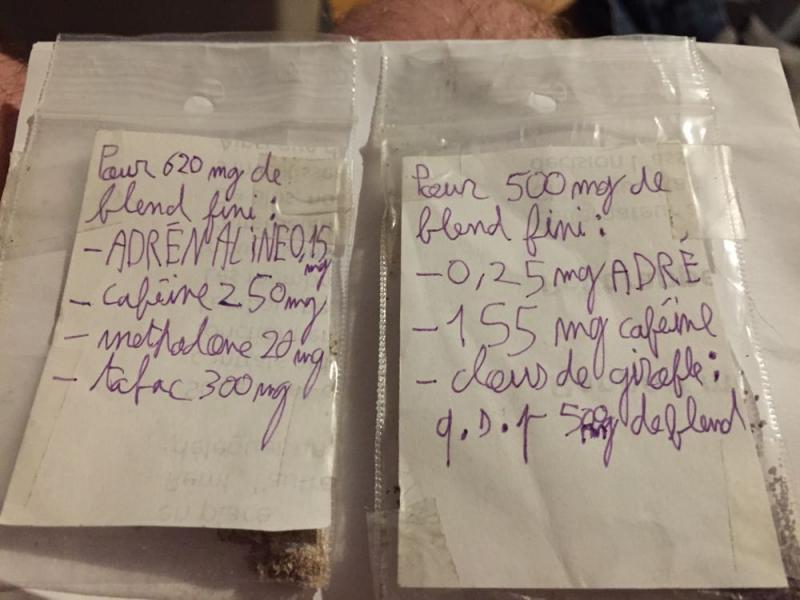 Pour 620 mg de
blend fini :
- ADRÉNALINE 0,15
mg
- caféine 250 mg
- méthadone 20 mg
- tabac 300 mg
Pour 500 mg de
blend fini :
- 0,25 mg ADRÉ
- 155 mg caféine
- clous de girofle :
q.s.p 500mg de blend